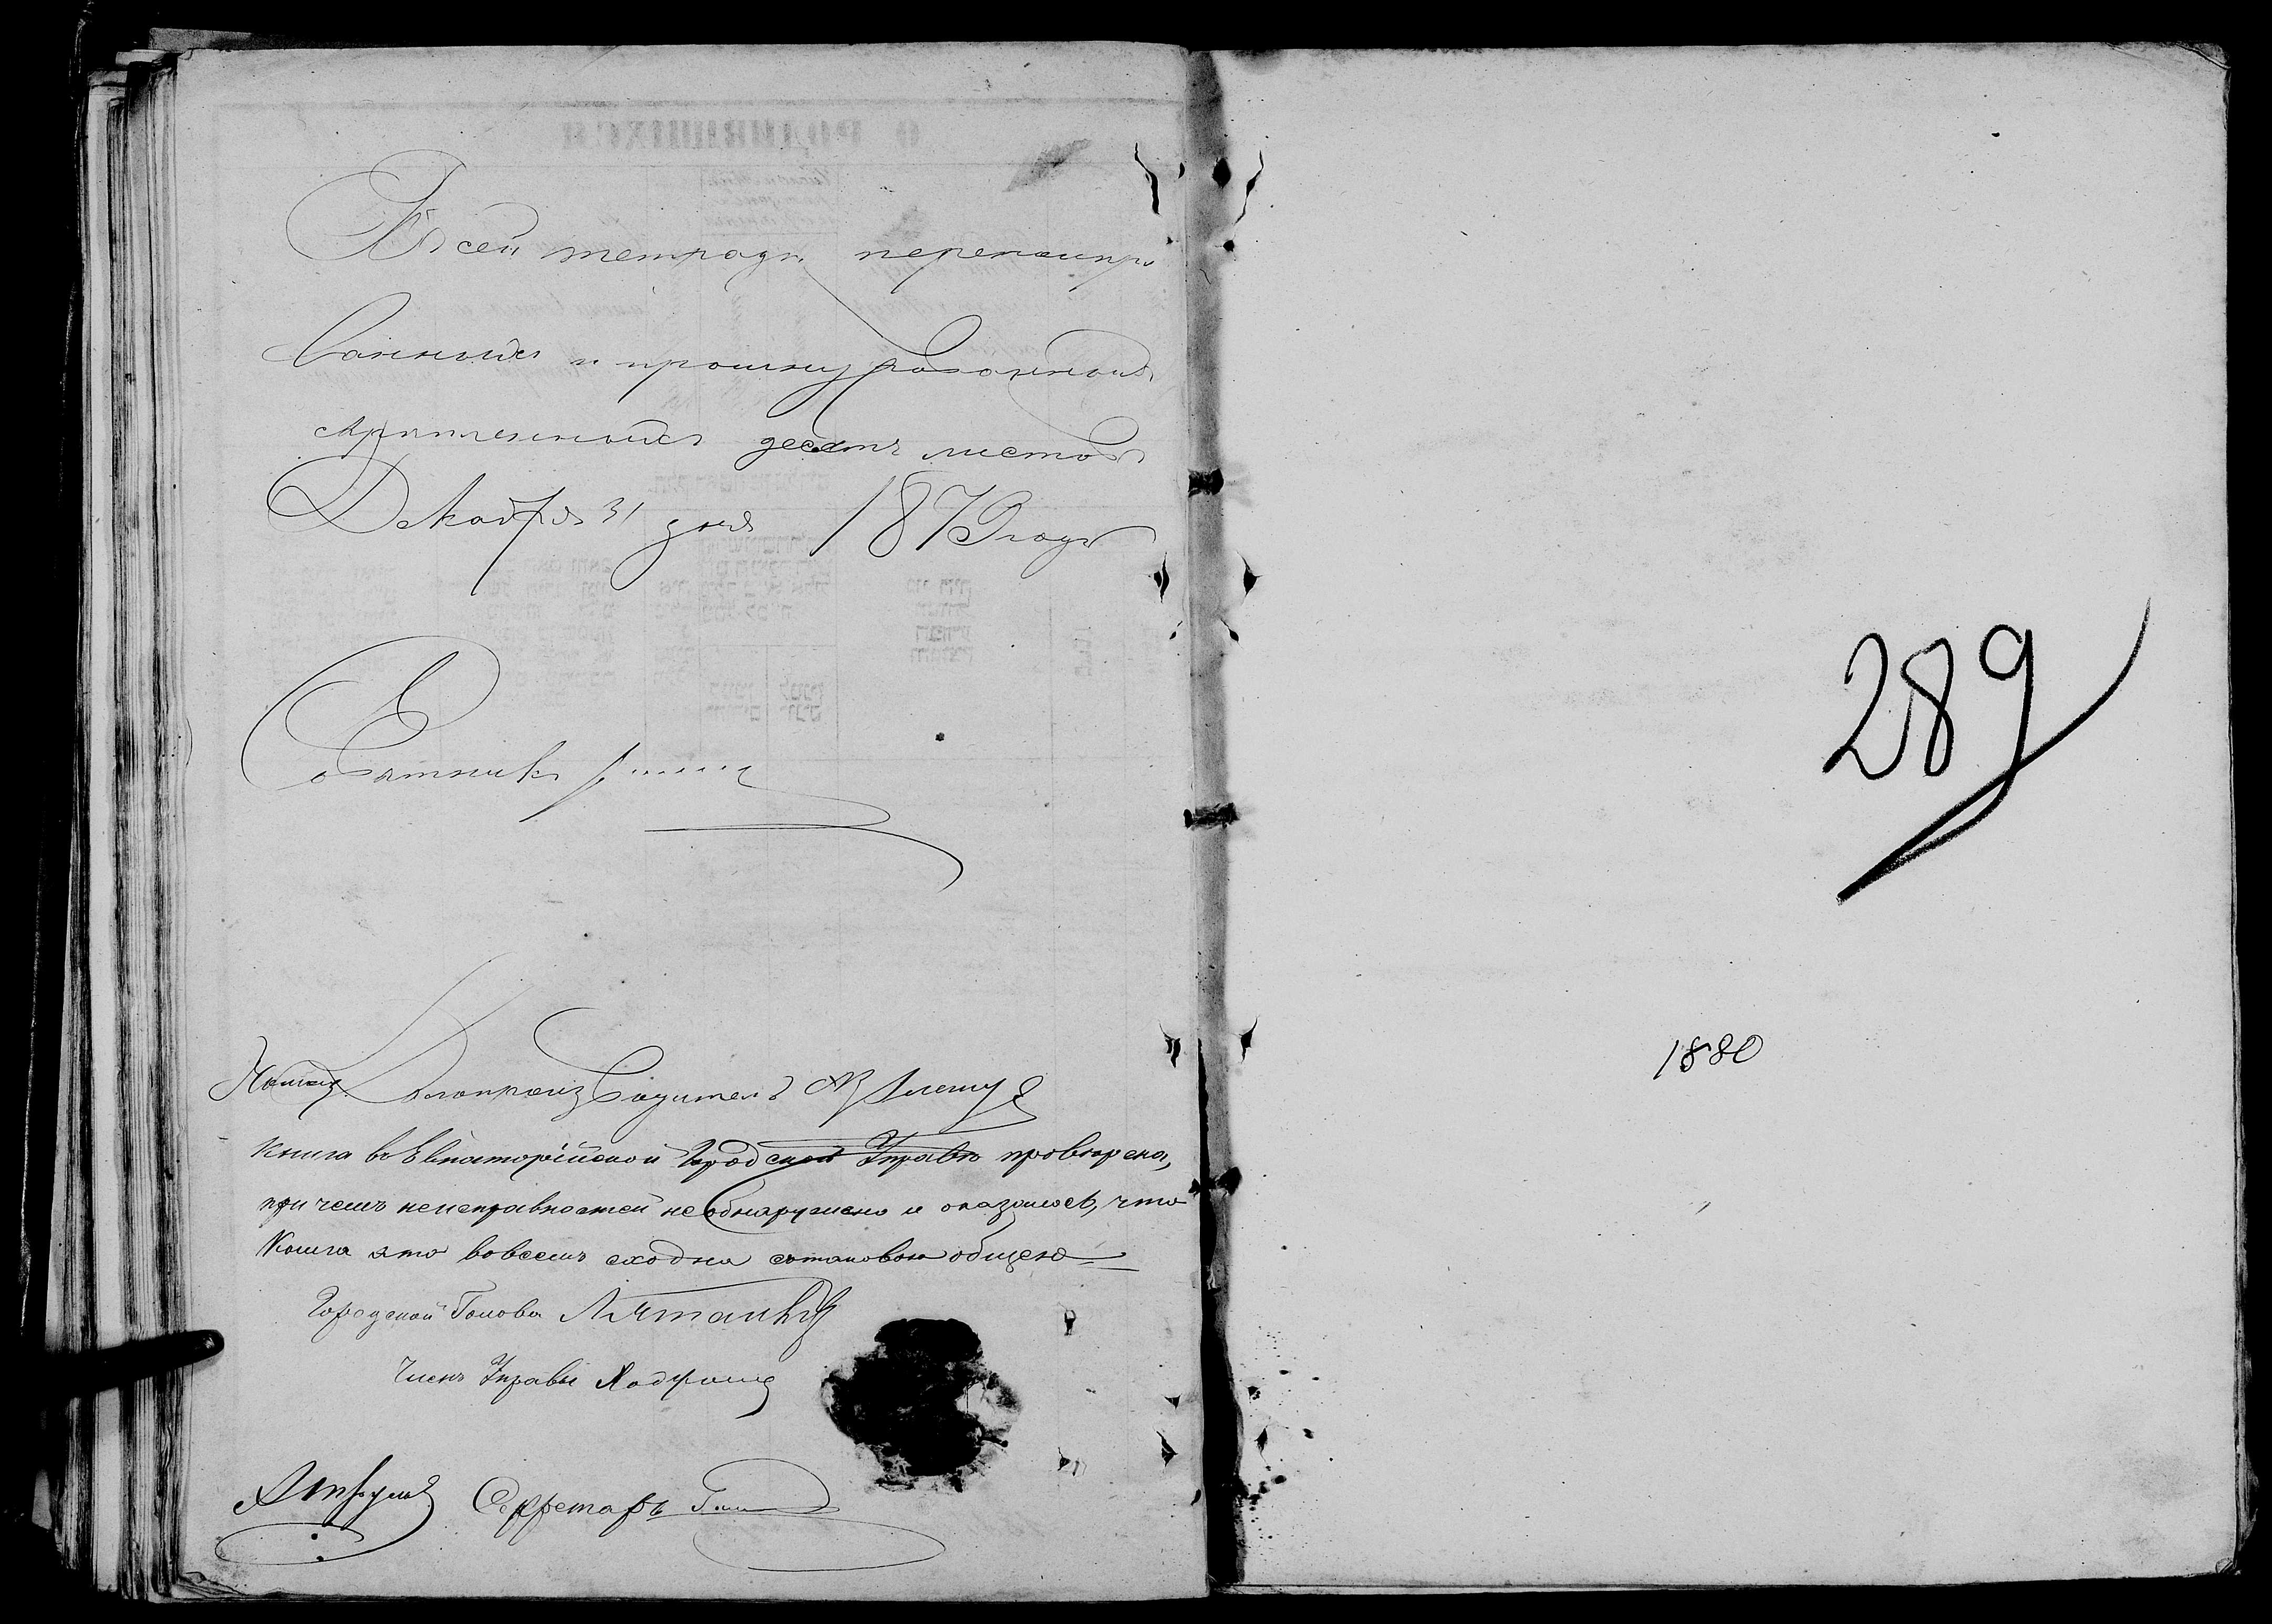 Въ сей тетради перенумеро
ванныхъ и прошнурованныхъ
скрѣпленныхъ десять листовъ
Декабря 31 дня 1879 года
Совѣтникъ
Делопроизводитель
Книга въ Евпаторійской Городской Управѣ провѣрена,
при чемъ неисправностей не обнаружено и оказалось, что
книга эта во всемъ сходна съ таковою общею
Городской Голова
Членъ Управы
Секретарь
289
1880